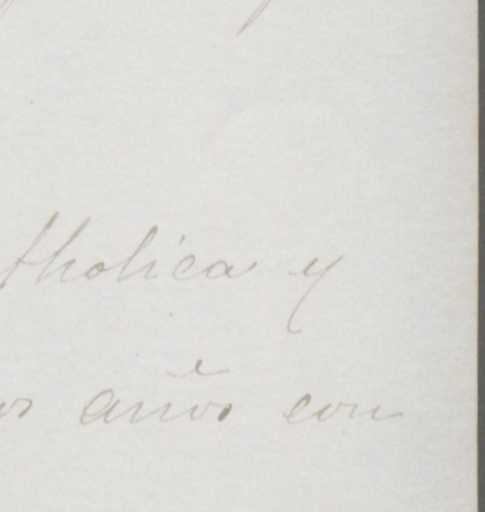 tholica y
os años con